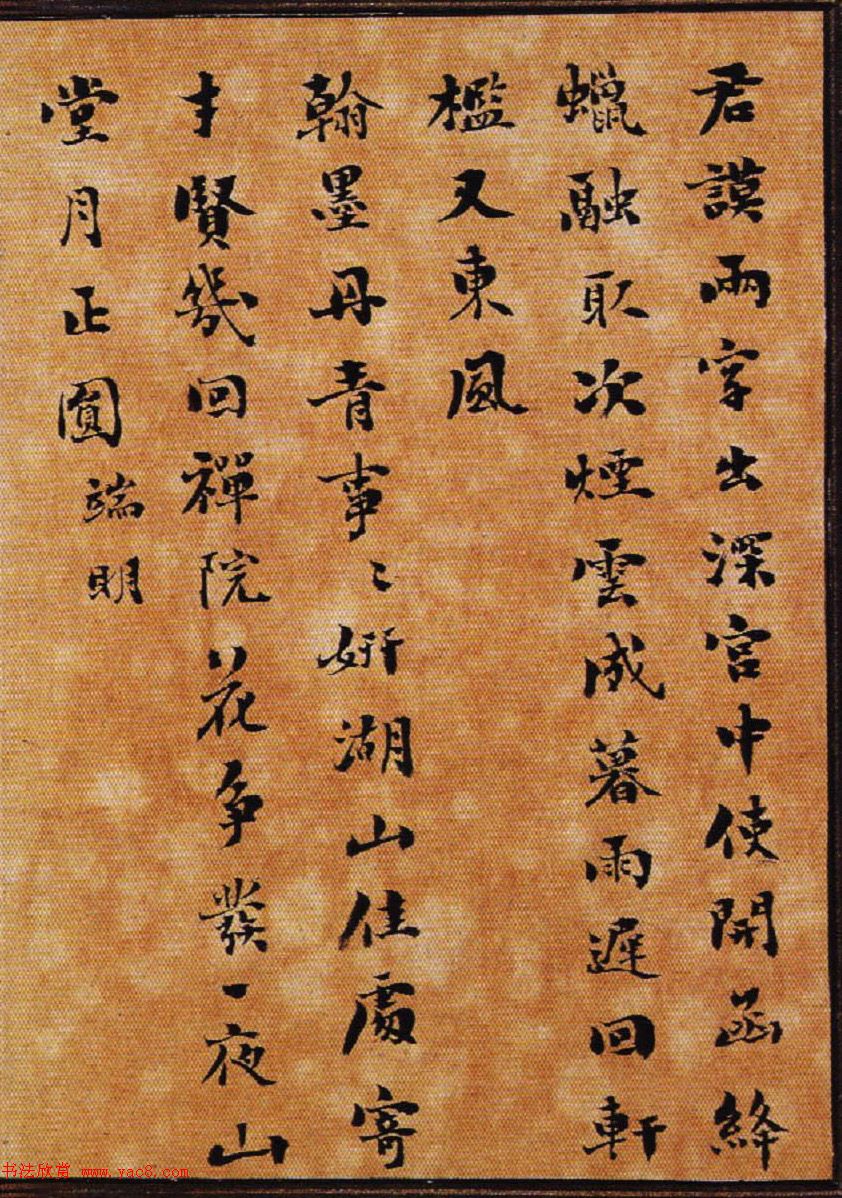 君謨兩字出深宮中使開函絳
蠟融取次煙雲成暮雨遲回軒
檻又東風
翰墨丹青事〻妍湖山佳處寄
才賢幾回禪院花争發一夜山
堂月正圓端明
书法欣赏 www.yac8.com